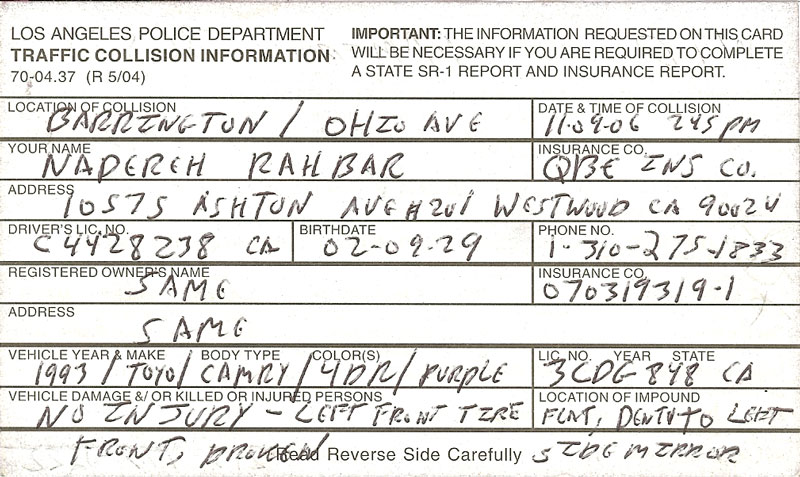 LOS ANGELES POLICE DEPARTMENT
TRAFFIC COLLISION INFORMATION
70-04.37 (R 5/04)
IMPORTANT: THE INFORMATION REQUESTED ON THIS CARD
WILL BE NECESSARY IF YOU ARE REQUIRED TO COMPLETE
A STATE SR-1 REPORT AND INSURANCE REPORT.
LOCATION OF COLLISION
BARRINGTON / OHIO AVE
DATE & TIME OF COLLISION
11-09-06 245 PM
YOUR NAME
NADEREH RAHBAR
INSURANCE CO.
QBE INS CO.
ADDRESS
10575 ASHTON AVE #201 WESTWOOD CA 90024
DRIVER'S LIC. NO.
C4428238 CA
BIRTHDATE
02-09-29
PHONE NO.
1-310-275-1833
REGISTERED OWNER'S NAME
SAME
INSURANCE CO.
070319319-1
ADDRESS
SAME
VEHICLE YEAR & MAKE BODY TYPE COLOR(S)
1993/TOYO/CAMRY/4DR/PURPLE
LIC. NO. YEAR STATE
3CDG848 CA
VEHICLE DAMAGE &/ OR KILLED OR INJURED PERSONS
NO INJURY - LEFT FRONT TIRE
LOCATION OF IMPOUND
FLAT, DENT TO LEFT
FRONT, BROKEN SIDE MIRROR
Read Reverse Side Carefully